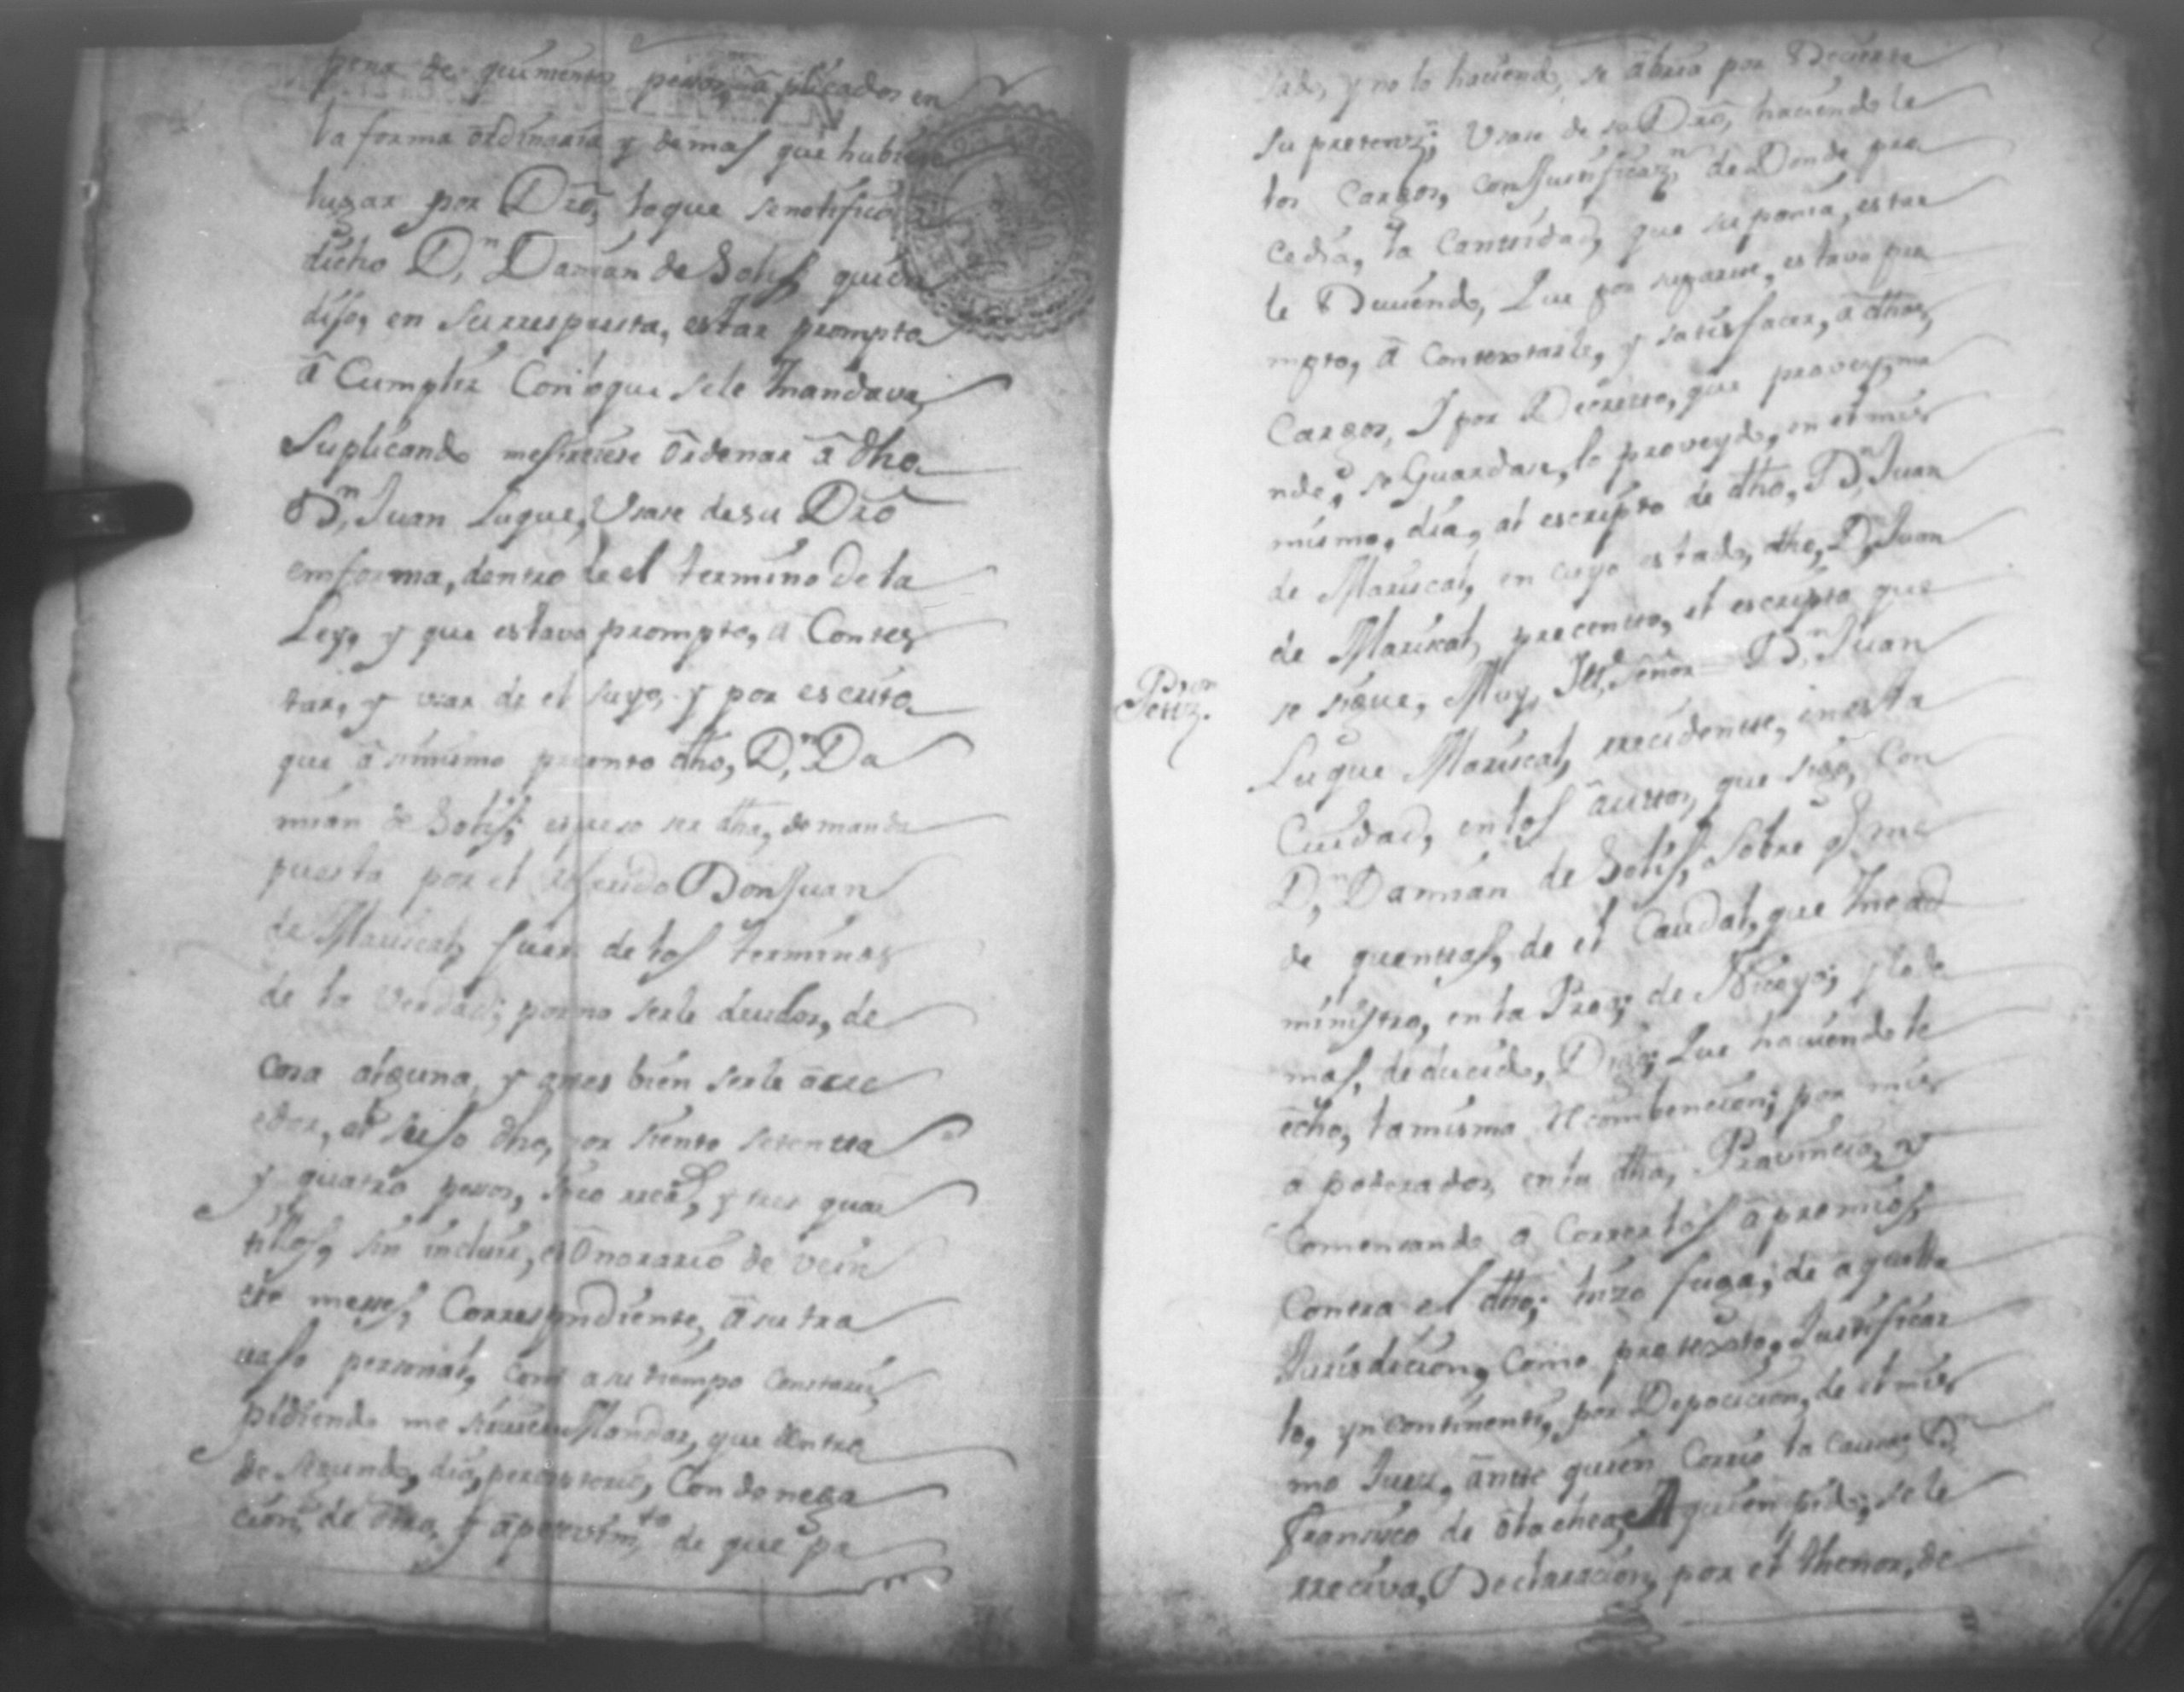 pena de quinientos pesos, âplicados en
la forma ordinaria y demas que hubiese
lugar por Dro, loque senotificó â
dicho D.n Damian de Solis, quien
dijo, en Surrespuesta, estar prompto
â Cumplir Conloque Sele Mandava,
Suplicando mesirviese Ordenar â dho
D.n Juan Luque, Usase desu Dro
enforma, dentro de el termino Dela
Ley, y que estava prompto, a Contes
tar, y usar de el suyo, y por escrito
que âsimismo presento dho, D.n Da
mian de Solis, espreso ser dha, demanda
puesta por el referido Don Juan
de Mariscal, fuera delos terminos
de la Verdad; porno serle deudor, de
cosa alguna, y antes bien serle âcre
edor, el suso dho, por siento setenta
y quatro pesos, sinco rreas, y tres quar
tillos, sin incluir, el Onorario de vein
te meses, Correspondiente, âsu tra
vajo personal, como asu tiempo Constaria,
pidiendo me sirviese Mandar, que dentro
de segundo, dia, perentorio, Con denega
cion, de otro, y âpersevim.to de que pa
sado, y no lo haciendo, se
su pretenz.n Usase de su Dro, haciendole
los Cargos, con Justificaz.n de Donde pro
cedia, la Cantidad, que suponia, estar
le Deviendo, Que por separarse, estava pro
mpto, â Contextarle, y satisfacer, â dhos,
Cargos, I por Decreto, que provey, ma
nde, se Guardase, lo proveydo, en el mis
mismo, dia, al escripto de dho, D.n Juan
de Mariscal, en cuyo estado, dho, D.n Juan
de Mariscal, precento, el escripto que
se sigue, Muy, Ill.e Señor D.n Juan
Luque Mariscal, rrecidente, en esta
Ciudad, enlos âuttos, que sigo, Con
D.n Damian de Solis, Sobre q.e me
de quentas, de el Caudal, que me ad
ministro, enla Prov.a de ; y lo de
mas, deducido, Digo; Que haciendole
echo, lamisma rrecombencion; por mis
apoderados, en la dha, Provincia, y
Comensando â Correr los âpremios,
Contra el dho; hizo fuga; de aquella
Jurisdicion, Como protexto, Justificar
lo, yncontinenti, por Deposicion, de el mis
mo Juez, ânte quien Corrio la Causa D.n
Francisco de A quien pido, se le
rreciva, Declaracion, por el thenor, de